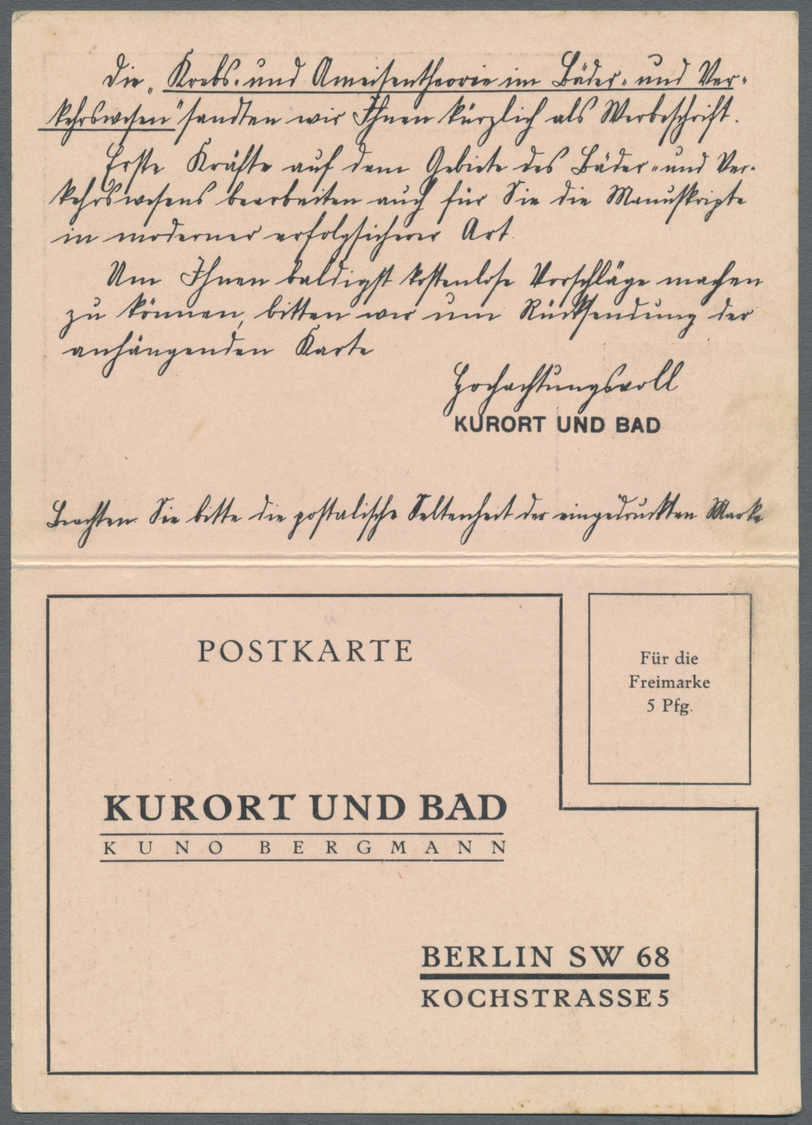 Die „Krebs- und Ameisentheorie im Bäder- und Ver-
kehrswesen“ sandten wir Ihnen kürzlich als Werbeschrift.
Erste Kräfte auf dem Gebiete des Bäder- und Ver-
kehrswesens bearbeiten auch für Sie die Manuskripte
in moderner erfolgsicherer Art.
Um Ihnen baldigst kostenlose Vorschläge machen
zu können, bitten wir um Rücksendung der
anhängenden Karte
Hochachtungsvoll
KURORT UND BAD
Beachten Sie bitte die postalische Seltenheit der eingedruckten Marke
POSTKARTE
Für die
Freimarke
5 Pfg.
KURORT UND BAD
KUNO BERGMANN
BERLIN SW 68
KOCHSTRASSE 5